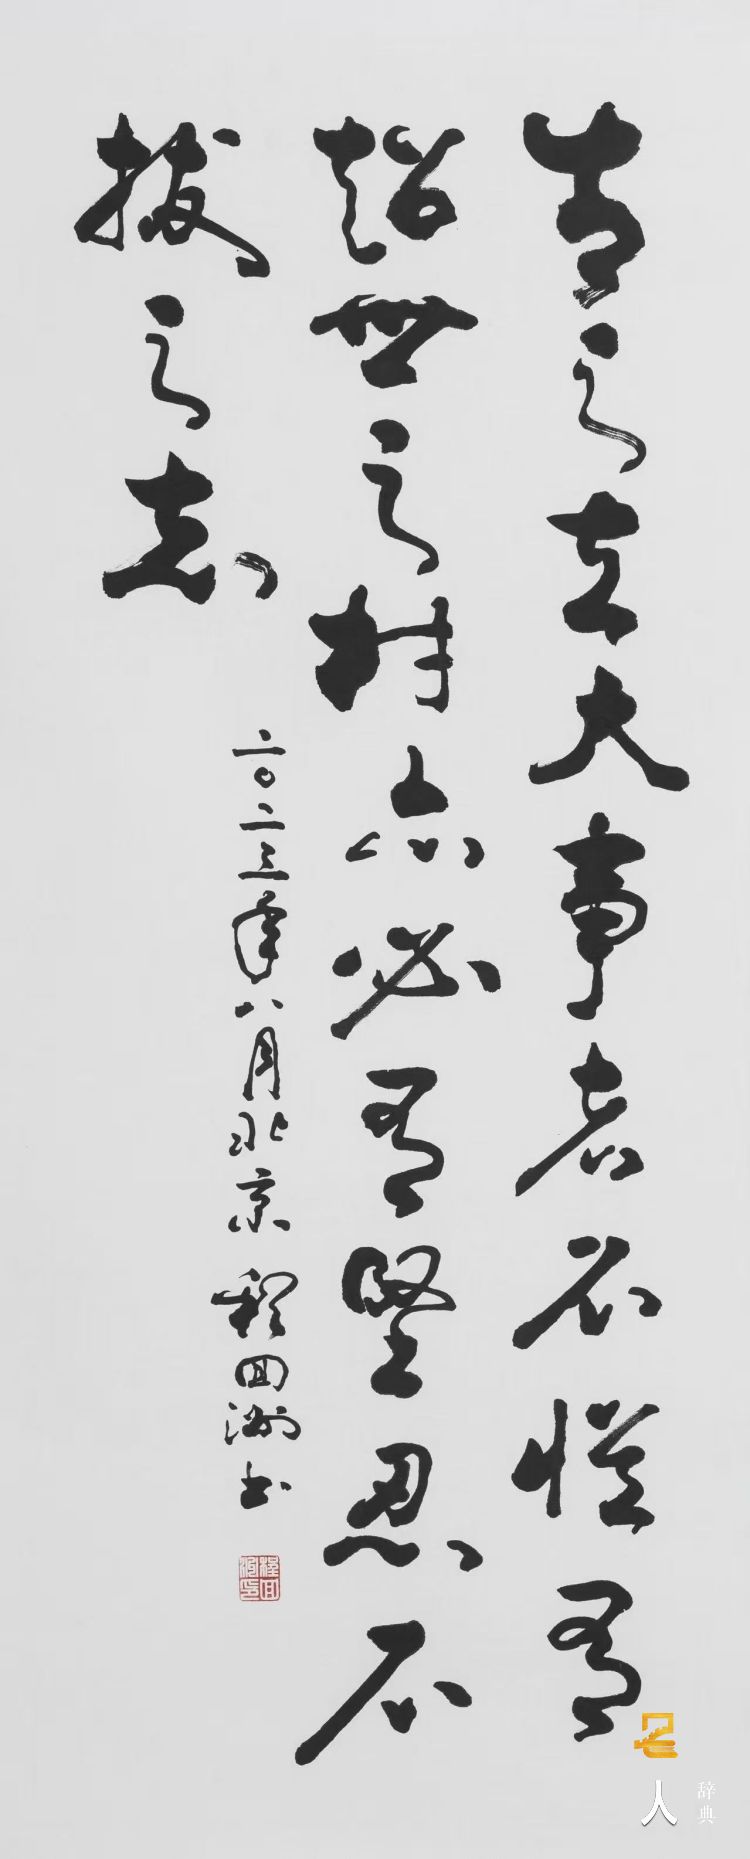 古之立大事者不惟有
超世之材亦必有堅忍不
拔之志
二〇二三年八月北京 程回洲书
程回洲印
名人
辞典